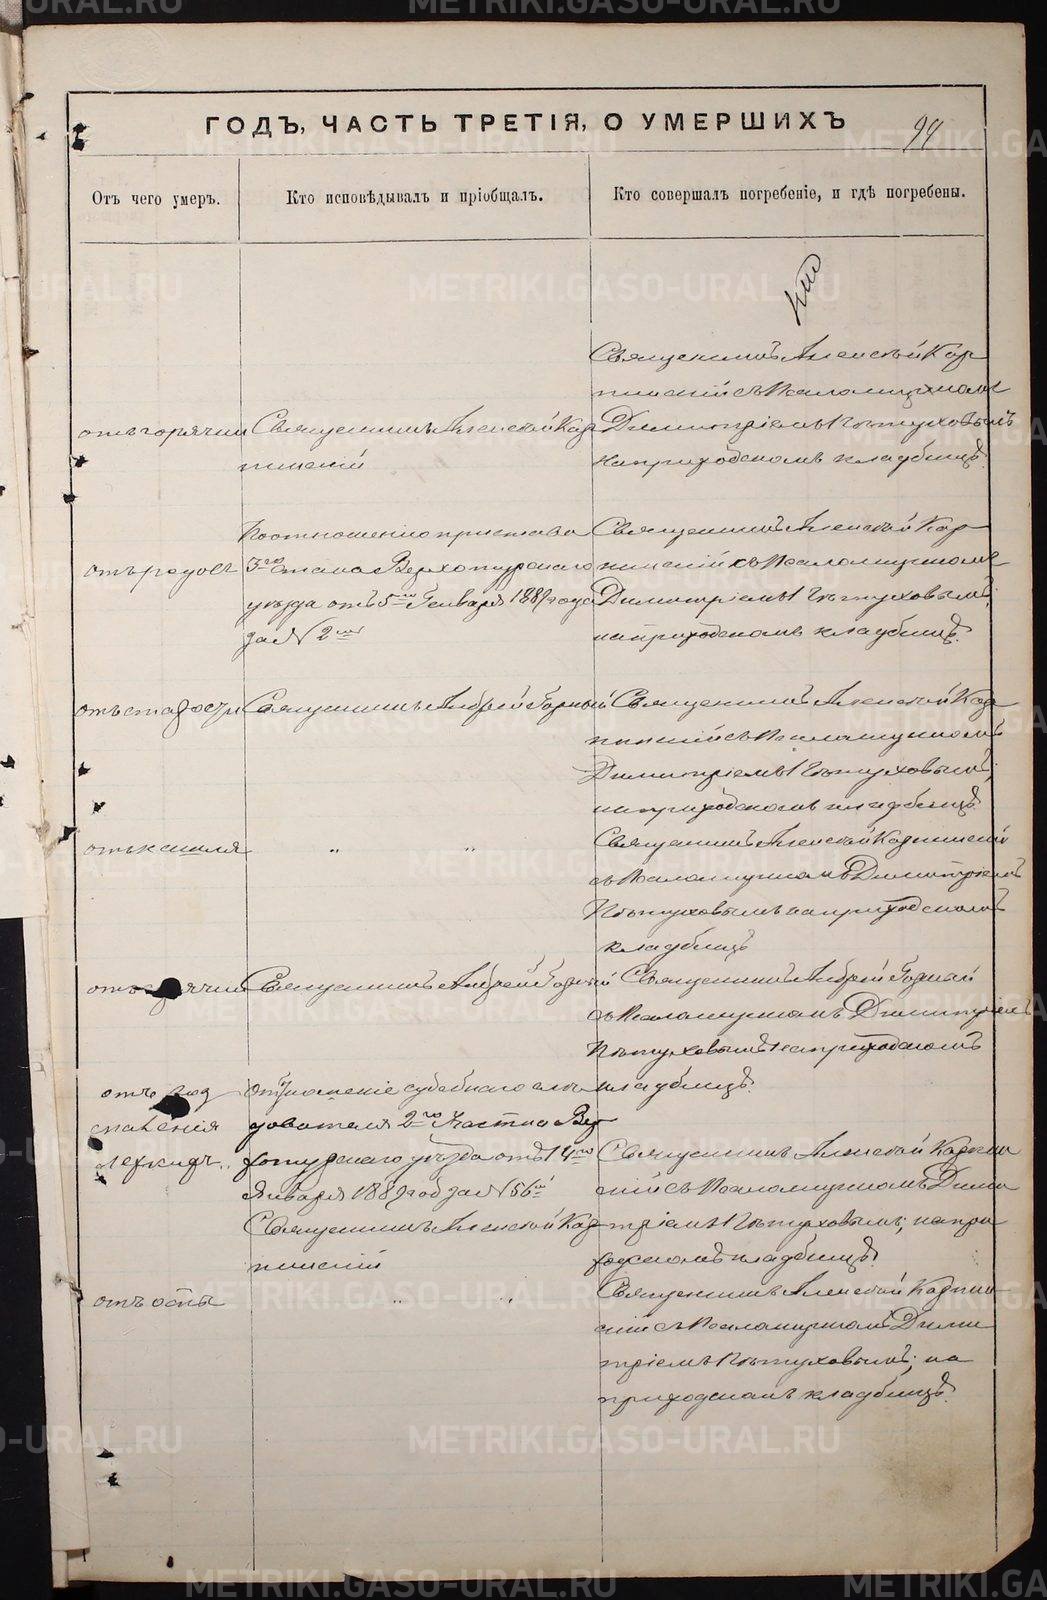 ГОДЪ, ЧАСТЬ ТРЕТІЯ, О УМЕРШИХЪ
94
Отъ чего умеръ.
Кто исповѣдывалъ и пріобщалъ.
Кто совершалъ погребеніе, и гдѣ погребены.
отъ горячки
Священникъ Алексѣй Кар
пинскій
Священникъ Алексѣй Кар
пинскій съ Псаломщикомъ
Димитріемъ Пѣтуховымъ
на приходскомъ кладбищѣ.
отъ родовъ
По отношенію пристава
3го стана Верхотурскаго
уѣзда отъ 5го Генваря 1889 года
за № 2мъ
Священникъ Алексѣй Кар
пинскій съ Псаломщикомъ
Димитріемъ Пѣтуховымъ,
на приходскомъ кладбищѣ.
отъ старости
Священникъ Андрей Горный
Священникъ Алексѣй Кар
пинскій съ Псаломщикомъ
Димитріемъ Пѣтуховымъ,
на приходскомъ кладбищѣ
отъ кашля
" "
Священникъ Алексѣй Карпинскій
съ Псаломщикомъ Димитріемъ
Пѣтуховымъ на приходскомъ
кладбищѣ
отъ горячки
Священникъ Андрей Горный
Священникъ Андрей Горный
съ Псаломщикомъ Димитріемъ
Пѣтуховымъ на приходскомъ
кладбищѣ.
отъ вос
паленія
легкихъ.
Отношеніе судебнаго слѣ
дователя 2го Участка Вер
хотурскаго уѣзда отъ 14го
Января 1889 год за № 56й
Священникъ Алексѣй Кар
пинскій
Священникъ Алексѣй Карпин
скій съ Псаломщикомъ Дими
тріемъ Пѣтуховымъ, на при
ходскомъ кладбищѣ.
отъ оспы
" "
Священникъ Алексѣй Карпин
скій съ Псаломщикомъ Дими
тріемъ Пѣтуховымъ, на
приходскомъ кладбищѣ.
METRIKI.GASO-URAL.RU